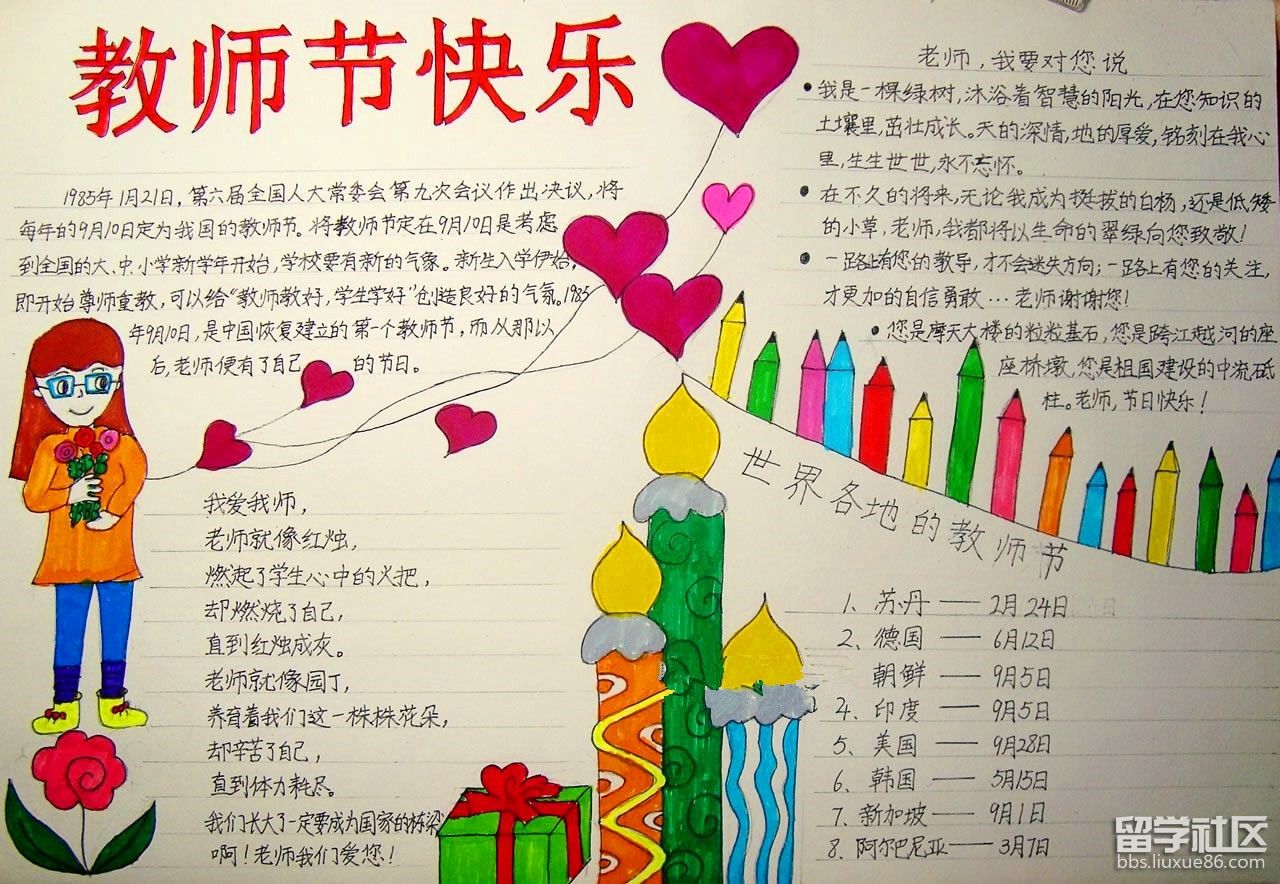 教师节快乐
1985年1月21日,第六届全国人大常委会第九次会议作出决议,将
每年的9月10日定为我国的教师节。将教师节定在9月10日是考虑
到全国的大、中、小学新学年开始,学校要有新的气象。新生入学伊始,
即开始尊师重教,可以给“教师教好,学生学好”创造良好的气氛。1985
年9月10日,是中国恢复建立的第一个教师节,而从那以
后,老师便有了自己 的节日。
我爱我师,
老师就像红烛,
燃起了学生心中的火把,
却燃烧了自己,
直到红烛成灰。
老师就像园丁,
养育着我们这一株株花朵,
却辛苦了自己,
直到体力耗尽。
我们长大了一定要成为国家的栋梁
啊!老师我们爱您!
老师,我要对您说
•我是一棵绿树,沐浴着智慧的阳光,在您知识的
土壤里,茁壮成长。天的深情,地的厚爱,铭刻在我心
里,生生世世,永不忘怀。
•在不久的将来,无论我成为挺拔的白杨,还是低矮
的小草,老师,我都将以生命的翠绿向您致敬!
•一路上有您的教导,才不会迷失方向;一路上有您的关注,
才更加的自信勇敢…老师谢谢您!
•您是摩天大楼的粒粒基石,您是跨江越河的座
座桥墩,您是祖国建设的中流砥
柱。老师,节日快乐!
世界各地的教师节
1、苏丹——2月24日
2、德国——6月12日
朝鲜——9月5日
4、印度——9月5日
5、美国——9月28日
6、韩国——5月15日
7、新加坡——9月1日
8、阿尔巴尼亚——3月7日
留学社区
bbs.liuxue86.com